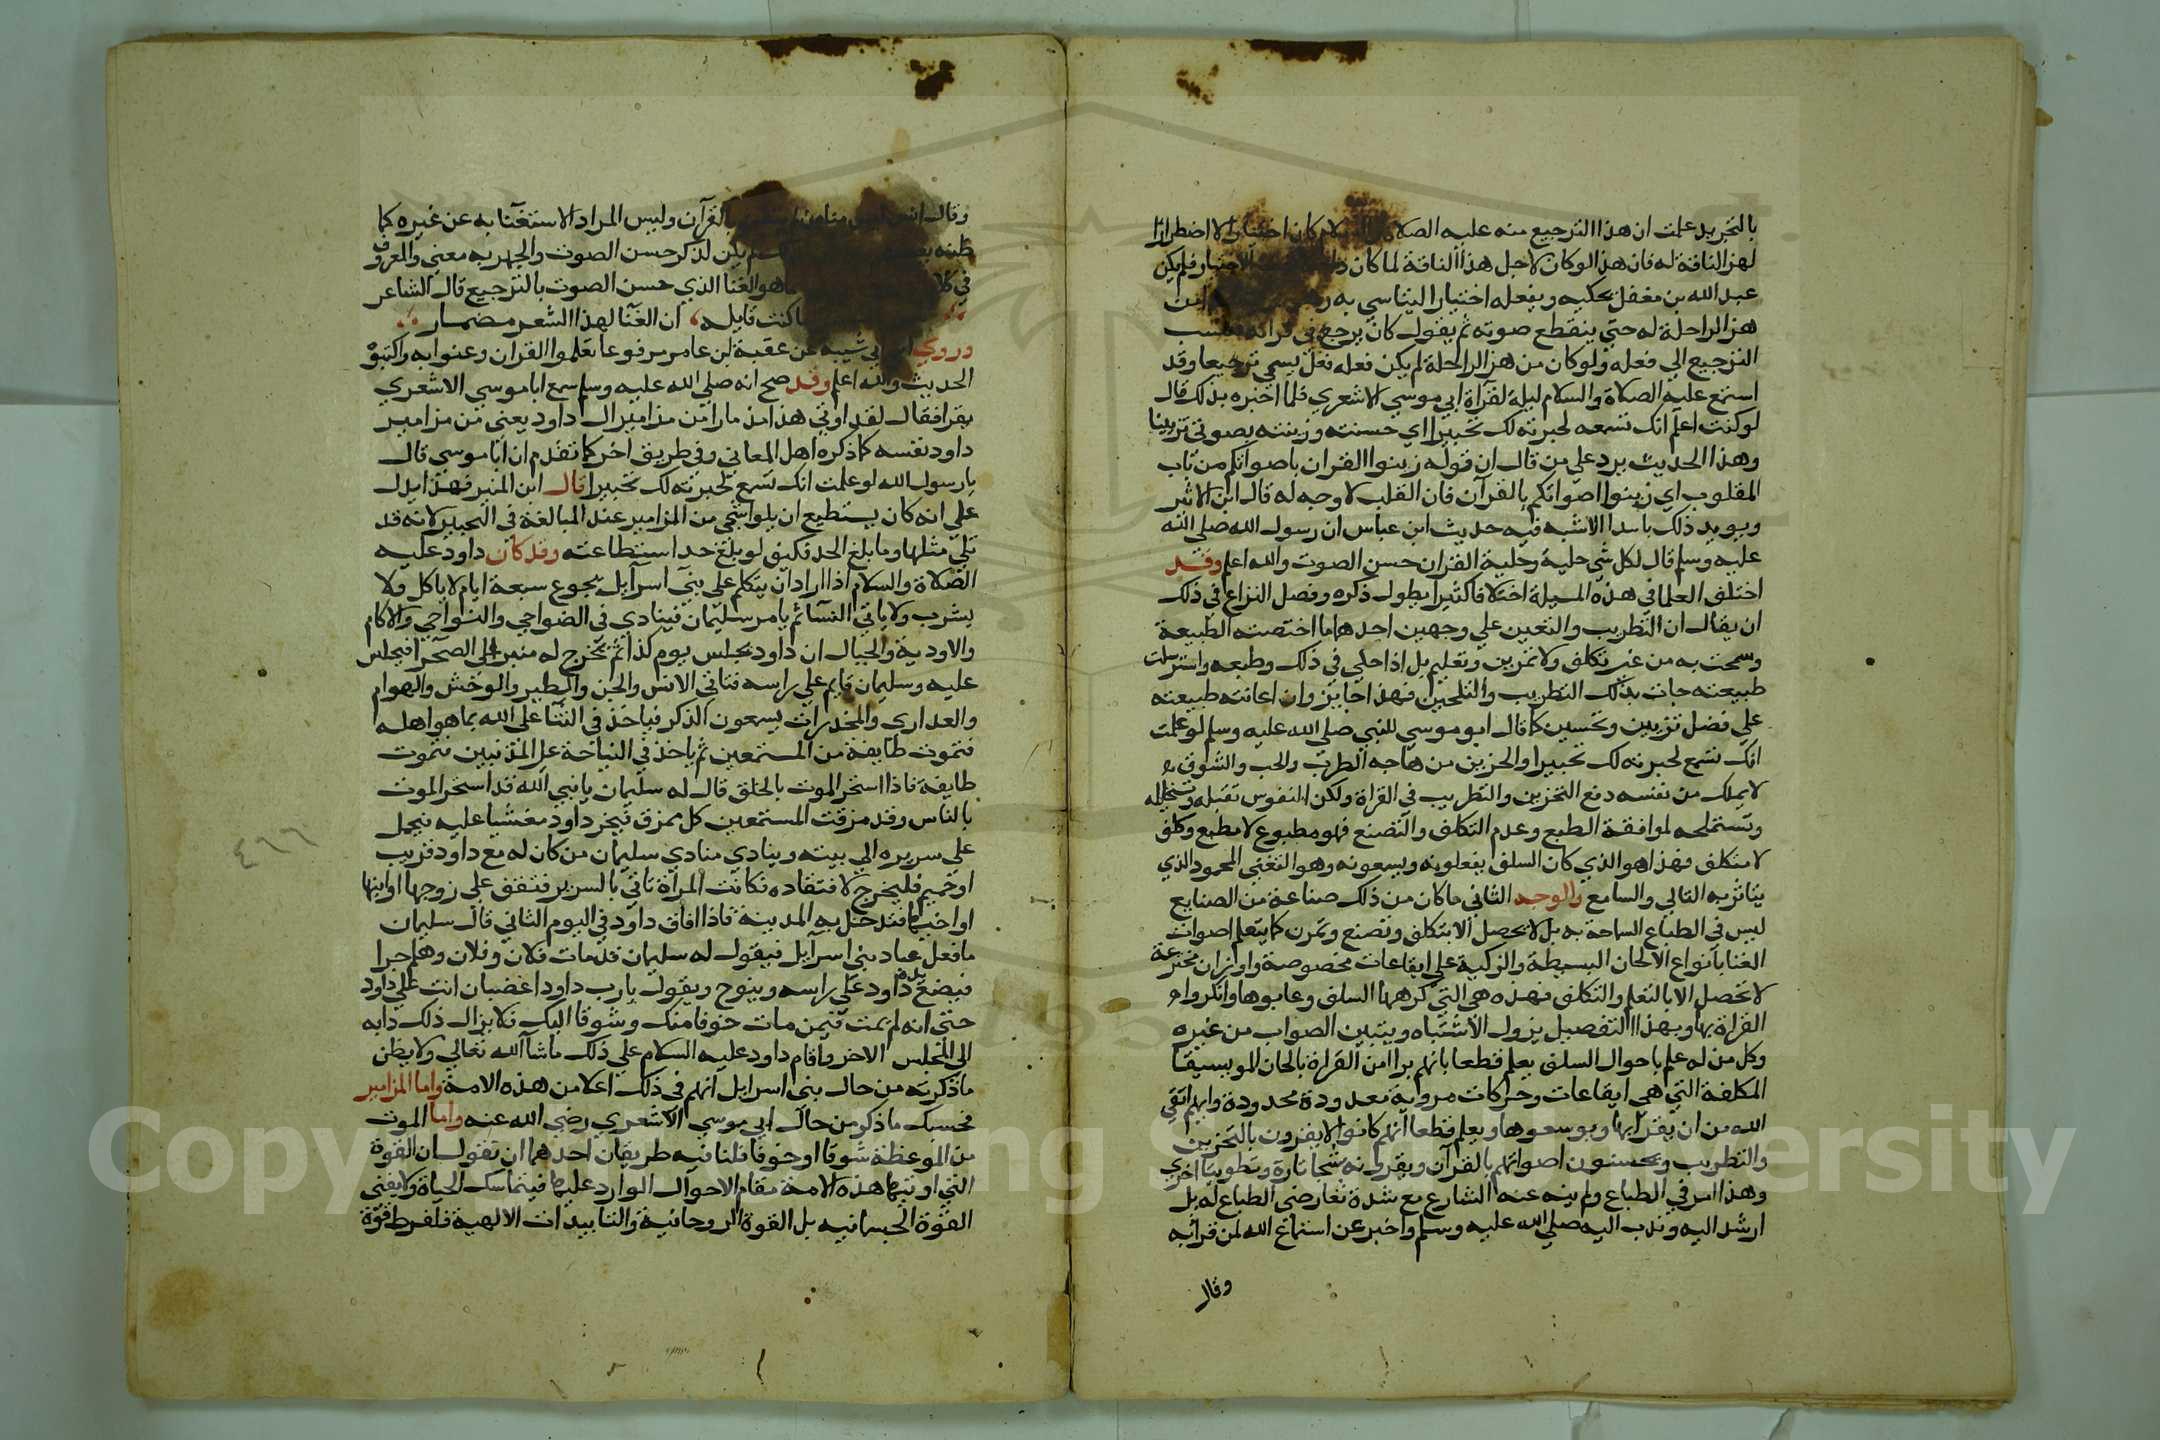 بالتجريد علمت ان هذا الترجيع منه عليه الصلاة والسلام كان اختيارا لا اضطرارا
لهز الناقة له فان هذا لو كان لاجل هذ الناقة لما كان داخلا تحت الاختيار فلم يكن
عبد الله بن مغفل يحكيه ويفعله اختيارا ليتاسي به
هز الراحلة له حتي ينقطع صوته ثم يقول كان يرجع في قراته فنسب
الترجيع الي فعله ولو كان من هز الراحلة لم يكن فعله فعل يسمي ترجيعا وقد
استمع عليه الصلاة والسلام ليلة لقرآة ابي موسي الاشعري فلما اخبره بذلك قال
لو كنت اعلم انك تسمعه لحبرته لك تحبيرا اي حسنته وزينته بصوتي تزيينا
وهذا الحديث يرد علي من قال ان قوله زينوا القران باصواتكم من باب
المقلوب اي زينوا اصواتكم بالقرآن فان القلب لا وجه له قال ابن الاثير
ويويد ذلك باسدا الاشبه فيه حديث ابن عباس ان رسول الله صلي الله
عليه وسلم قال لكل شي حلية وحلية القران حسن الصوت والله اعلم وقد
اختلف العلما في هذه المسيلة اختلافا كثيرا يطول ذكره وفصل النزاع في ذلك
ان يقال ان التطريب والتغين علي وجهين احدهما ما اختصته الطبيعة
وسمحت به من غير تكلف ولا تمرين وتعليم بل اذا خلي في ذلك وطبعه واسترسلت
طبيعته جات بذلك التطريب والتلحين فهذا جايز وان اعانته طبيعته
علي فضل تزيين وتحسين كما قال ابو موسي للنبي صلي الله عليه وسلم لو علمت
انك تسمع لحبرته لك تحبيرا والحزين من هاجه الطرب والحب والشوق
لا يملك من نفسه دفع التحزين والتطريب في القراة ولكن النفوس تقبله وتستحليه
وتستملحه لموافقة الطبع وعدم التكلف والتصنع فهو مطبوع لا مطبع وكلف
لا متكلف فهذا هو الذي كان السلف يفعلونه ويسمعونه وهو التغني المحمود الذي
يتاثر به التالي والسامع والوجه الثاني ما كان من ذلك صناعة من الصنايع
ليس في الطباع السماحة به بل لا يحصل الا بتكلف وتصنع وتمرن كما يتعلم اصوات
الغنا بانواع الالحان البسيطة والمركبة علي ايقاعات مخصوصة واوزان مخترعة
لا تحصل الا بالتعلم والتكلف فهذه هي التي كرهها السلف وعابوها وانكروا
القراة بها وبهذا التفصيل يزول الاشتباه ويتبين الصواب من غيره
وكل من له علم باحوال السلف يعلم قطعا بانهم براا من القراة بالحان الموسيقا
المكلفة التي هي ايقاعات وحركات مروية معدودة محدودة وانهم اتقي
الله من ان يقرا بها ويوسعوها ويعلم قطعا انهم كانوا لا يقرون بالتحزين
والتطريب ويحسنون اصواتهم بالقرآن ويقرونه شجا تارة وتطويبا اخري
وهذا امر في الطباع ولم ينه عنه الشارع مع شدة تقاضي الطباع له بل
ارشد اليه وندب اليه صلي الله عليه وسلم واخبر عن استماع الله لمن قرا به
وقال
وقال بالقرآن وليس المراد الاستغنآ به عن غيره كما
ظنه لم يكن لذكر حسن الصوت والجهر به معني والمعروف
في هو الغنا الذي حسن الصوت بالترجيع قال الشاعر
كنت قايله، ان الغنآ لهذا الشعر مضمار
وروي شيبه عن عقبة بن عامر مرفوعا تعلموا القران وغنوا به واكتبوه
الحديث والله اعلم وقد صح انه صلي الله عليه وسلم سمع ابا موسي الاشعري
يقرا فقال لقد اوتي هذا من مزامير ال داود يعني من مزامير
داود نفسه كما ذكره اهل المعاني وفي طريق اخر كما تقدم ان ابا موسي قال
يا رسول الله لو علمت انك تسمع لحبرته لك تحبيرا قال ابن المنير فهذا يدل
علي انه كان يستطيع ان يتلو اشجي من المزامير عند المبالغة في التحبير لانه قد
تلي مثلها وما بلغ الحد فكيف لو بلغ حد استطاعته وقد كان داود عليه
الصلاة والسلام اذا اراد ان يتكلم علي بني اسرآيل يجوع سبعة ايام لا ياكل ولا
يشرب ولا ياتي النسآ ثم يامر سليمان فينادي في الضواحي والنواحي والاكام
والاودية والجبال ان داود يجلس يوم كذا ثم تخرج له منبر الي الصحرآ فيجلس
عليه وسليمان قايم علي راسه فتاتي الانس والجن والطير والوحش والهوام
والعداري والمخدرات يسمعون الذكر فياخذ في الثنا علي الله بما هو اهله
فتموت طايفة من المستمعين ثم ياخذ في النياحة عل المذنبين فتموت
طايفة فاذا استحر الموت بالخلق قال له سليمان يا نبي الله قد استحر الموت
بالناس وقد مزقت المستمعين كل ممزق فيخر داود مغشيا عليه فيحمل
علي سريره الي بيته وينادي منادي سليمان من كان له مع داود قريب
او حميم فليخرج لافتقاده فكانت المرآة تاتي بالسرير فتقف علي زوجها او ابنها
او اخيها فتدخل به المدينة فاذا افاق داود في اليوم الثاني قال سليمان
ما فعل عباد بني اسرآيل فيقول له سليمان قد مات فلان وفلان وهلم جرا
فيضع داود يده علي راسه وينوح ويقول يا رب داود اغضبان انت علي داود
حتي انه لم يمت فيمن مات خوفا منك وشوقا اليك فلا يزال ذلك دابه
الي المجلس الاخر واقام داود عليه السلام علي ذلك ما شا الله تعالي ولا يظن
ما ذكرته من حال بني اسراييل انهم في ذلك اعلا من هذه الامة واما المزامير
فحسبك ما ذكر من حال ابي موسي الاشعري رضي الله عنه واما الموت
من الموعظة شوقا او خوفا فلنا فيه طريقان احدهما ان تقول ان القوة
التي اوتيتها هذه الامة تقاوم الاحوال الواردة عليها فيتماسك الحياة ولا يفني
القوة الجسمانية بل القوة الروحانية والتاييدات الالهية فلفرط قوة
٤٦٦
Copyright © King Saud University